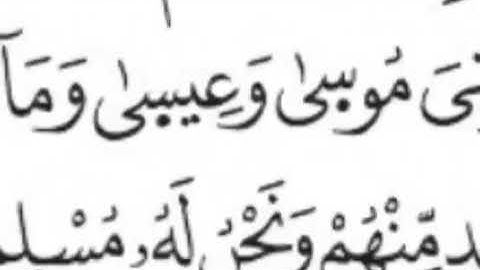 مُوسىٰ وَعِيسىٰ وَمَآ
مِّنْهُمْ وَنَحْنُ لَهُۥ